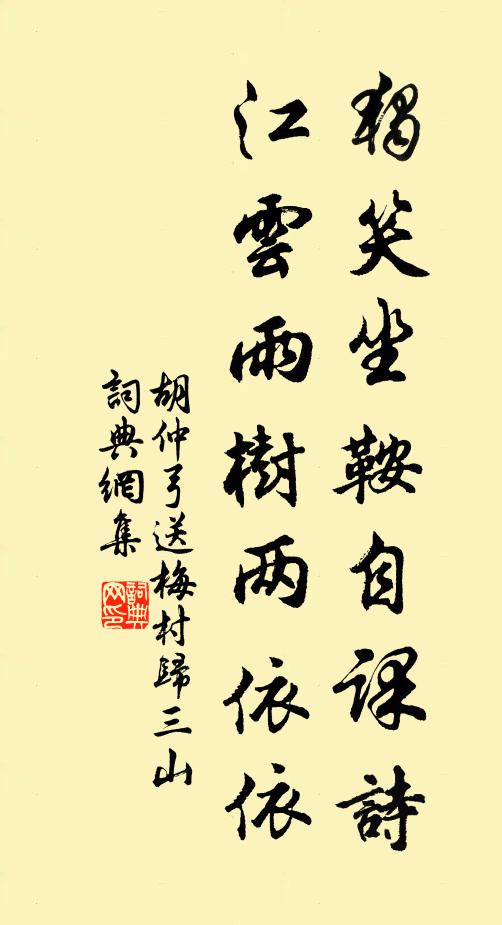 獨笑坐鞍自課詩
江雲雨樹两依依
胡仲弓送梅村歸三山
詞典網集
詞典網印